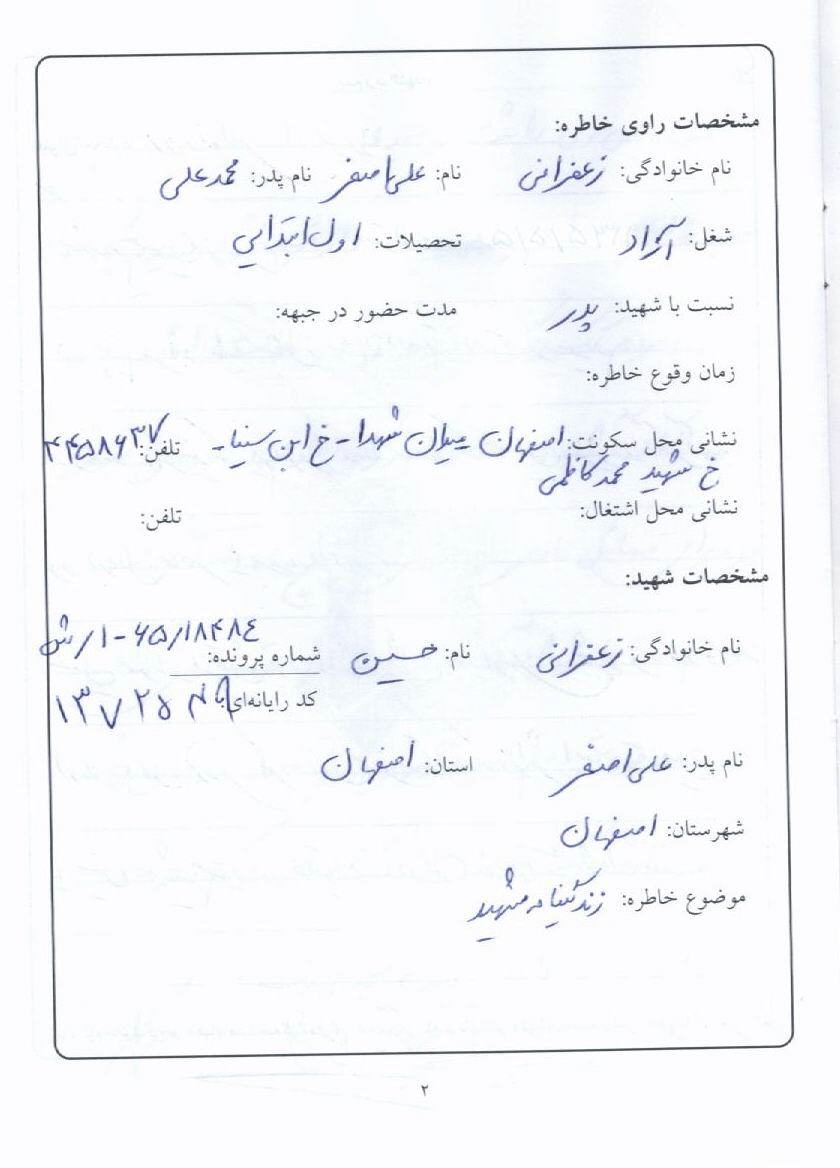 مشخصات راوی خاطره:
نام خانوادگی: زعفرانی نام: علی اصغر نام پدر: محمد علی
شغل: آزاد تحصیلات: اول ابتدایی
نسبت با شهید: پدر مدت حضور در جبهه:
زمان وقوع خاطره:
نشانی محل سکونت: اصفهان میدان شهدا - خ ابن سینا - تلفن: ۴۴۵۸۶۳۷
خ شهید محمد کاظمی
نشانی محل اشتغال: تلفن:
مشخصات شهید:
نام خانوادگی: زعفرانی نام: حسین شماره پرونده: ۶۵/۱۸۴۸۴-۱/ش
کد رایانه‌ای:
نام پدر: علی اصغر استان: اصفهان
شهرستان: اصفهان
موضوع خاطره: زندگینامه شهید
۲